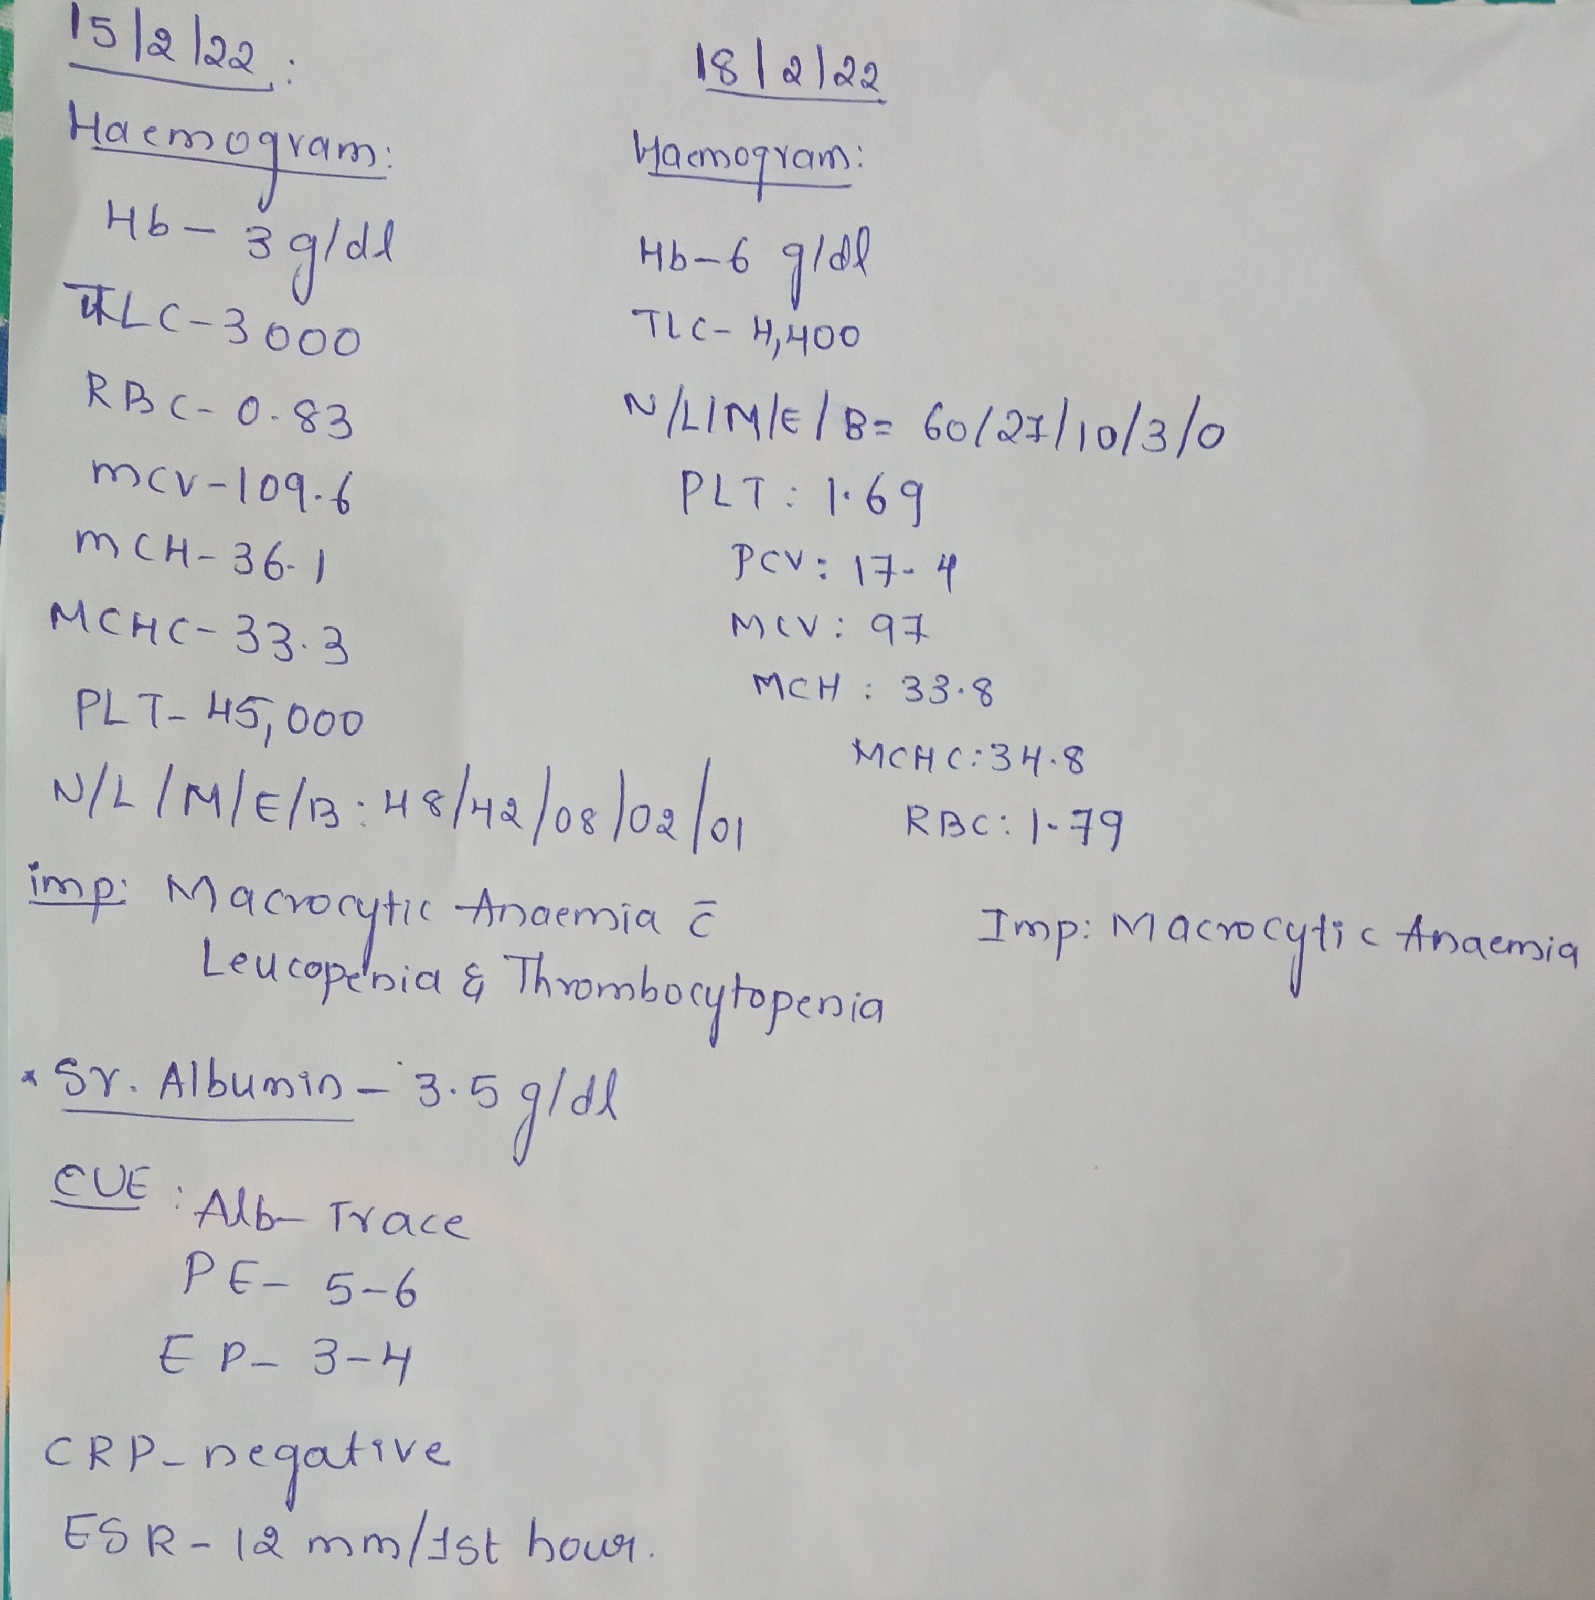 15/2/22:
Haemogram:
Hb - 3 g/dl
TLC - 3000
RBC - 0.83
mcv - 109.6
mCH - 36.1
MCHC - 33.3
PLT - 45,000
N/L/M/E/B: 48/42/08/02/01
imp: Macrocytic Anaemia c̄
Leucopenia & Thrombocytopenia
* Sr. Albumin - 3.5 g/dl
CUE: Alb - Trace
PE - 5-6
EP - 3-4
CRP - negative
ESR - 12 mm/1st hour.
18/2/22
Haemogram:
Hb - 6 g/dl
TLC - 4,400
N/L/M/E/B = 60/27/10/3/0
PLT: 1.69
PCV: 17.4
MCV: 97
MCH: 33.8
MCHC: 34.8
RBC: 1.79
Imp: Macrocytic Anaemia